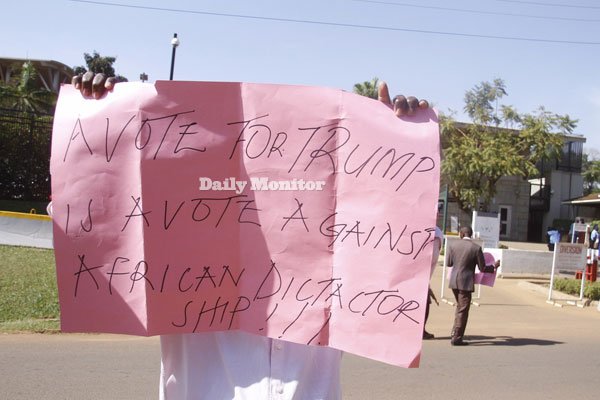 A VOTE FOR TRUMP
Daily Monitor
IS A VOTE AGAINST
AFRICAN DICTACTOR
SHIP!!!